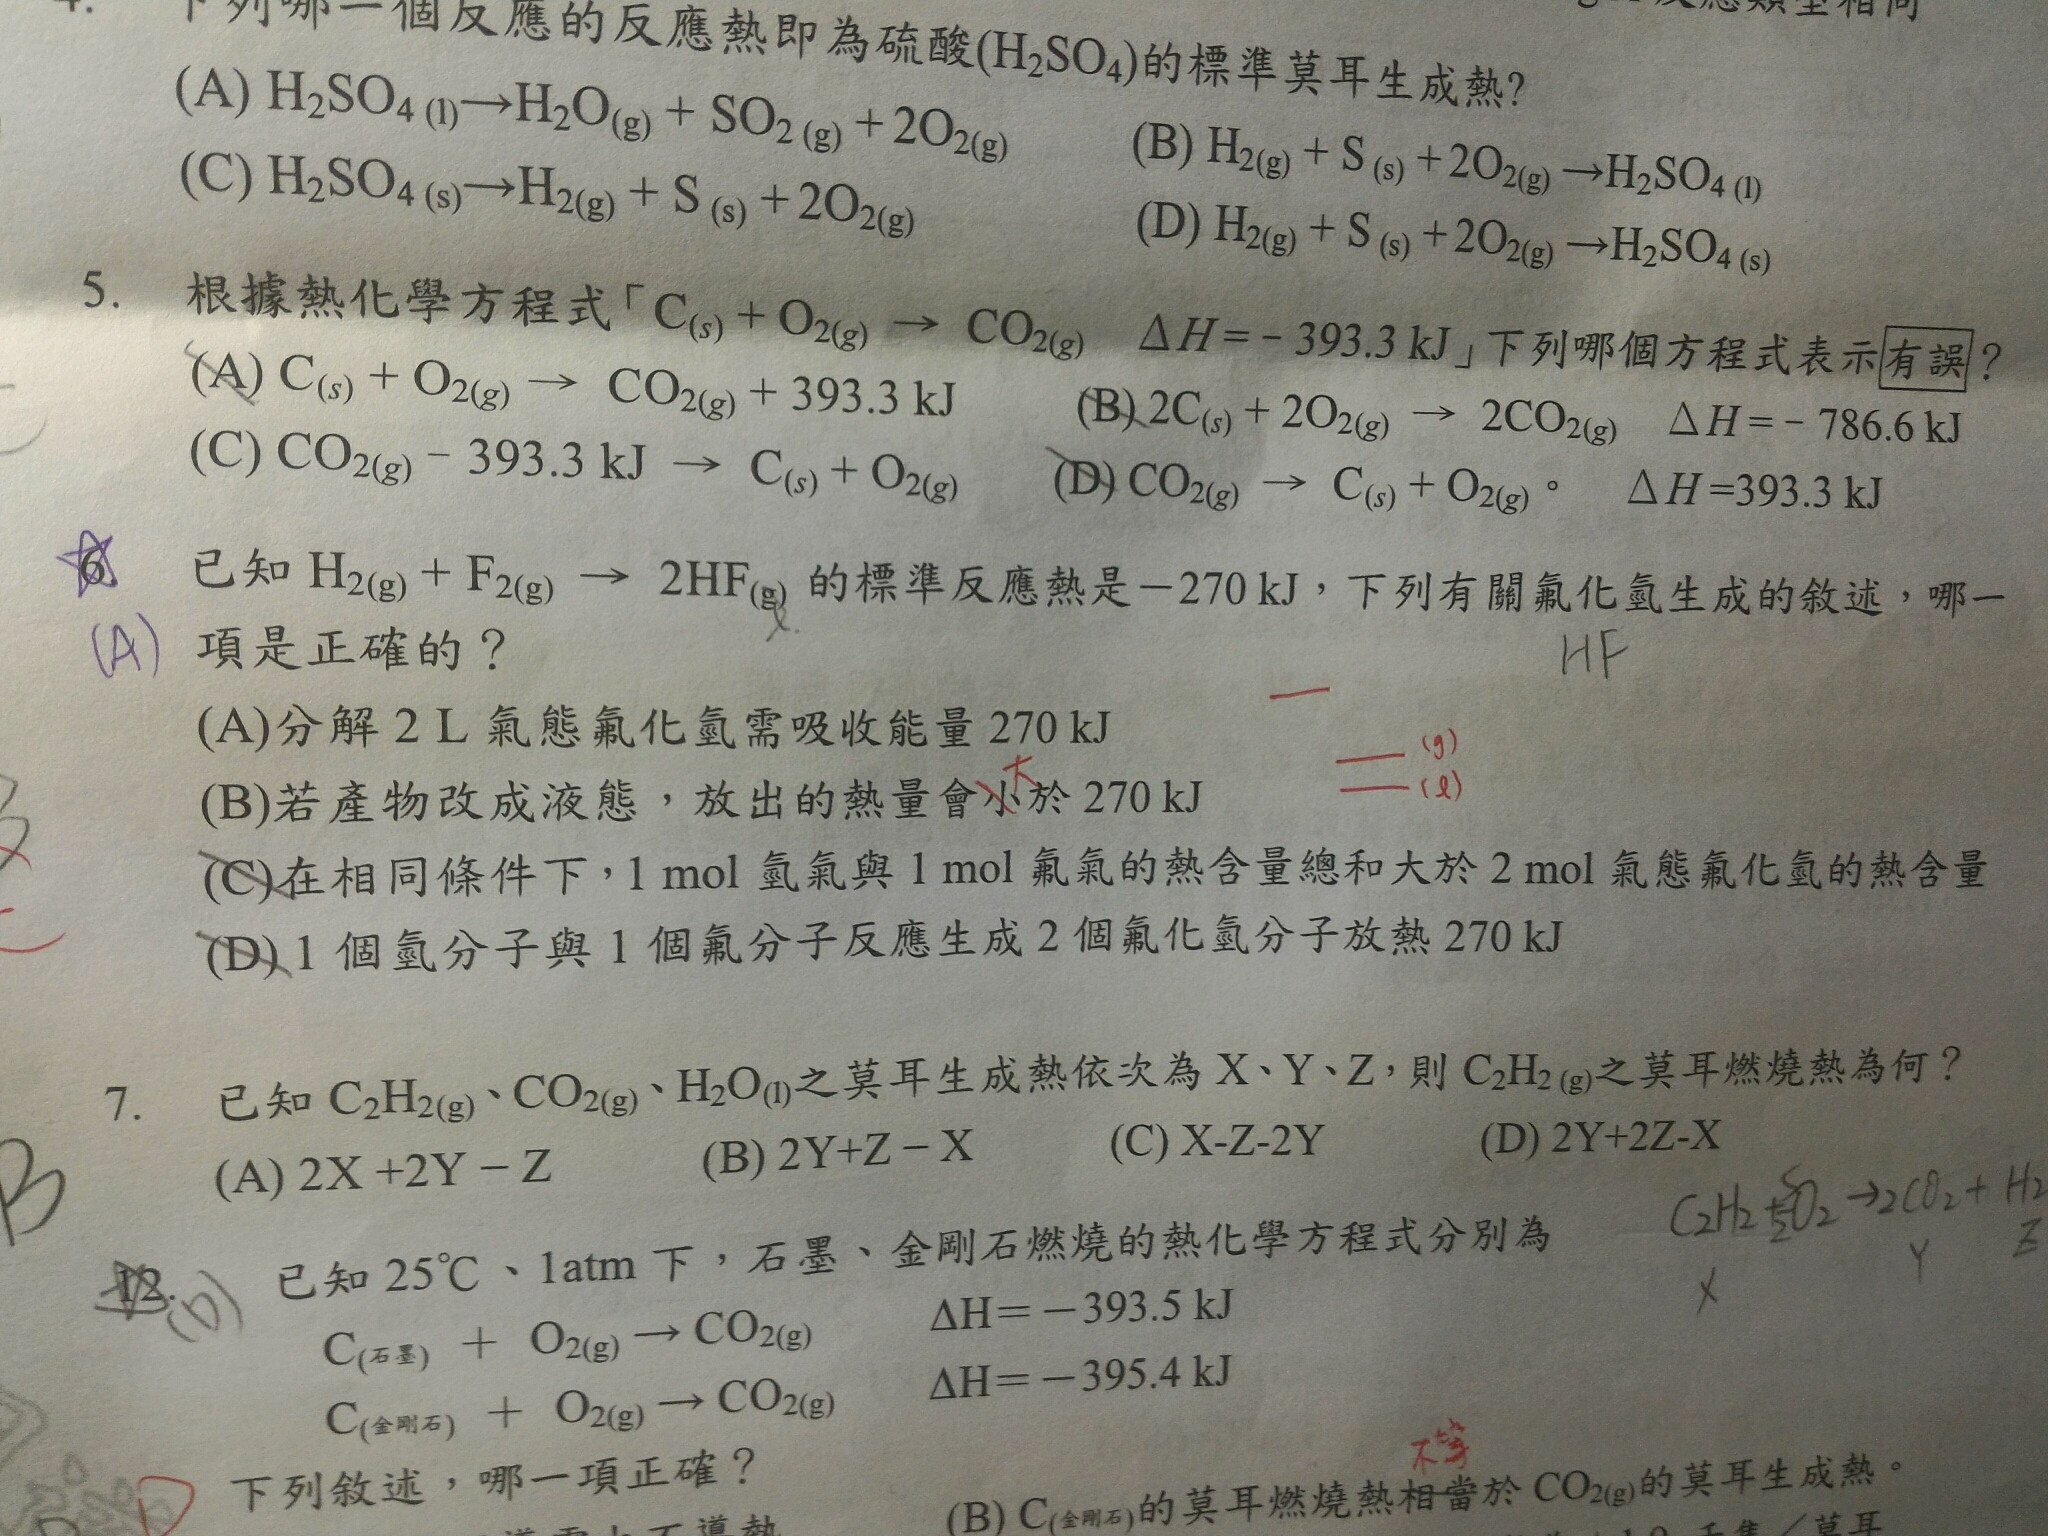 4. 下列哪一個反應的反應熱即為硫酸(H2SO4)的標準莫耳生成熱?
反應類型相同
(A) H2SO4 (l)→H2O(g) + SO2 (g) + 2O2(g)
(B) H2(g) + S (s) + 2O2(g) →H2SO4 (l)
(C) H2SO4 (s)→H2(g) + S (s) + 2O2(g)
(D) H2(g) + S (s) + 2O2(g) →H2SO4 (s)
5. 根據熱化學方程式「C(s) + O2(g) → CO2(g) ΔH=－393.3 kJ」下列哪個方程式表示有誤？
(A) C(s) + O2(g) → CO2(g) + 393.3 kJ
(B) 2C(s) + 2O2(g) → 2CO2(g) ΔH=－786.6 kJ
(C) CO2(g)－393.3 kJ → C(s) + O2(g)
(D) CO2(g) → C(s) + O2(g)。 ΔH=393.3 kJ
6. 已知 H2(g) + F2(g) → 2HF(g) 的標準反應熱是－270 kJ，下列有關氟化氫生成的敘述，哪一
(A) 項是正確的？
HF
(A)分解 2 L 氣態氟化氫需吸收能量 270 kJ
(g)
(l)
大
(B)若產物改成液態，放出的熱量會小於 270 kJ
(C)在相同條件下，1 mol 氫氣與 1 mol 氟氣的熱含量總和大於 2 mol 氣態氟化氫的熱含量
(D) 1 個氫分子與 1 個氟分子反應生成 2 個氟化氫分子放熱 270 kJ
7. 已知 C2H2(g)、CO2(g)、H2O(l)之莫耳生成熱依次為 X、Y、Z，則 C2H2 (g)之莫耳燃燒熱為何？
B
(A) 2X +2Y－Z (B) 2Y+Z－X (C) X-Z-2Y (D) 2Y+2Z-X
C2H2 + O2 → 2CO2 + H2
X Y Z
12. 已知 25℃、1atm 下，石墨、金剛石燃燒的熱化學方程式分別為
(D)
C(石墨) ＋ O2(g)→CO2(g) ΔH＝－393.5 kJ
C(金剛石) ＋ O2(g)→CO2(g) ΔH＝－395.4 kJ
下列敘述，哪一項正確？
不等
(B) C(金剛石)的莫耳燃燒熱相當於 CO2(g)的莫耳生成熱。